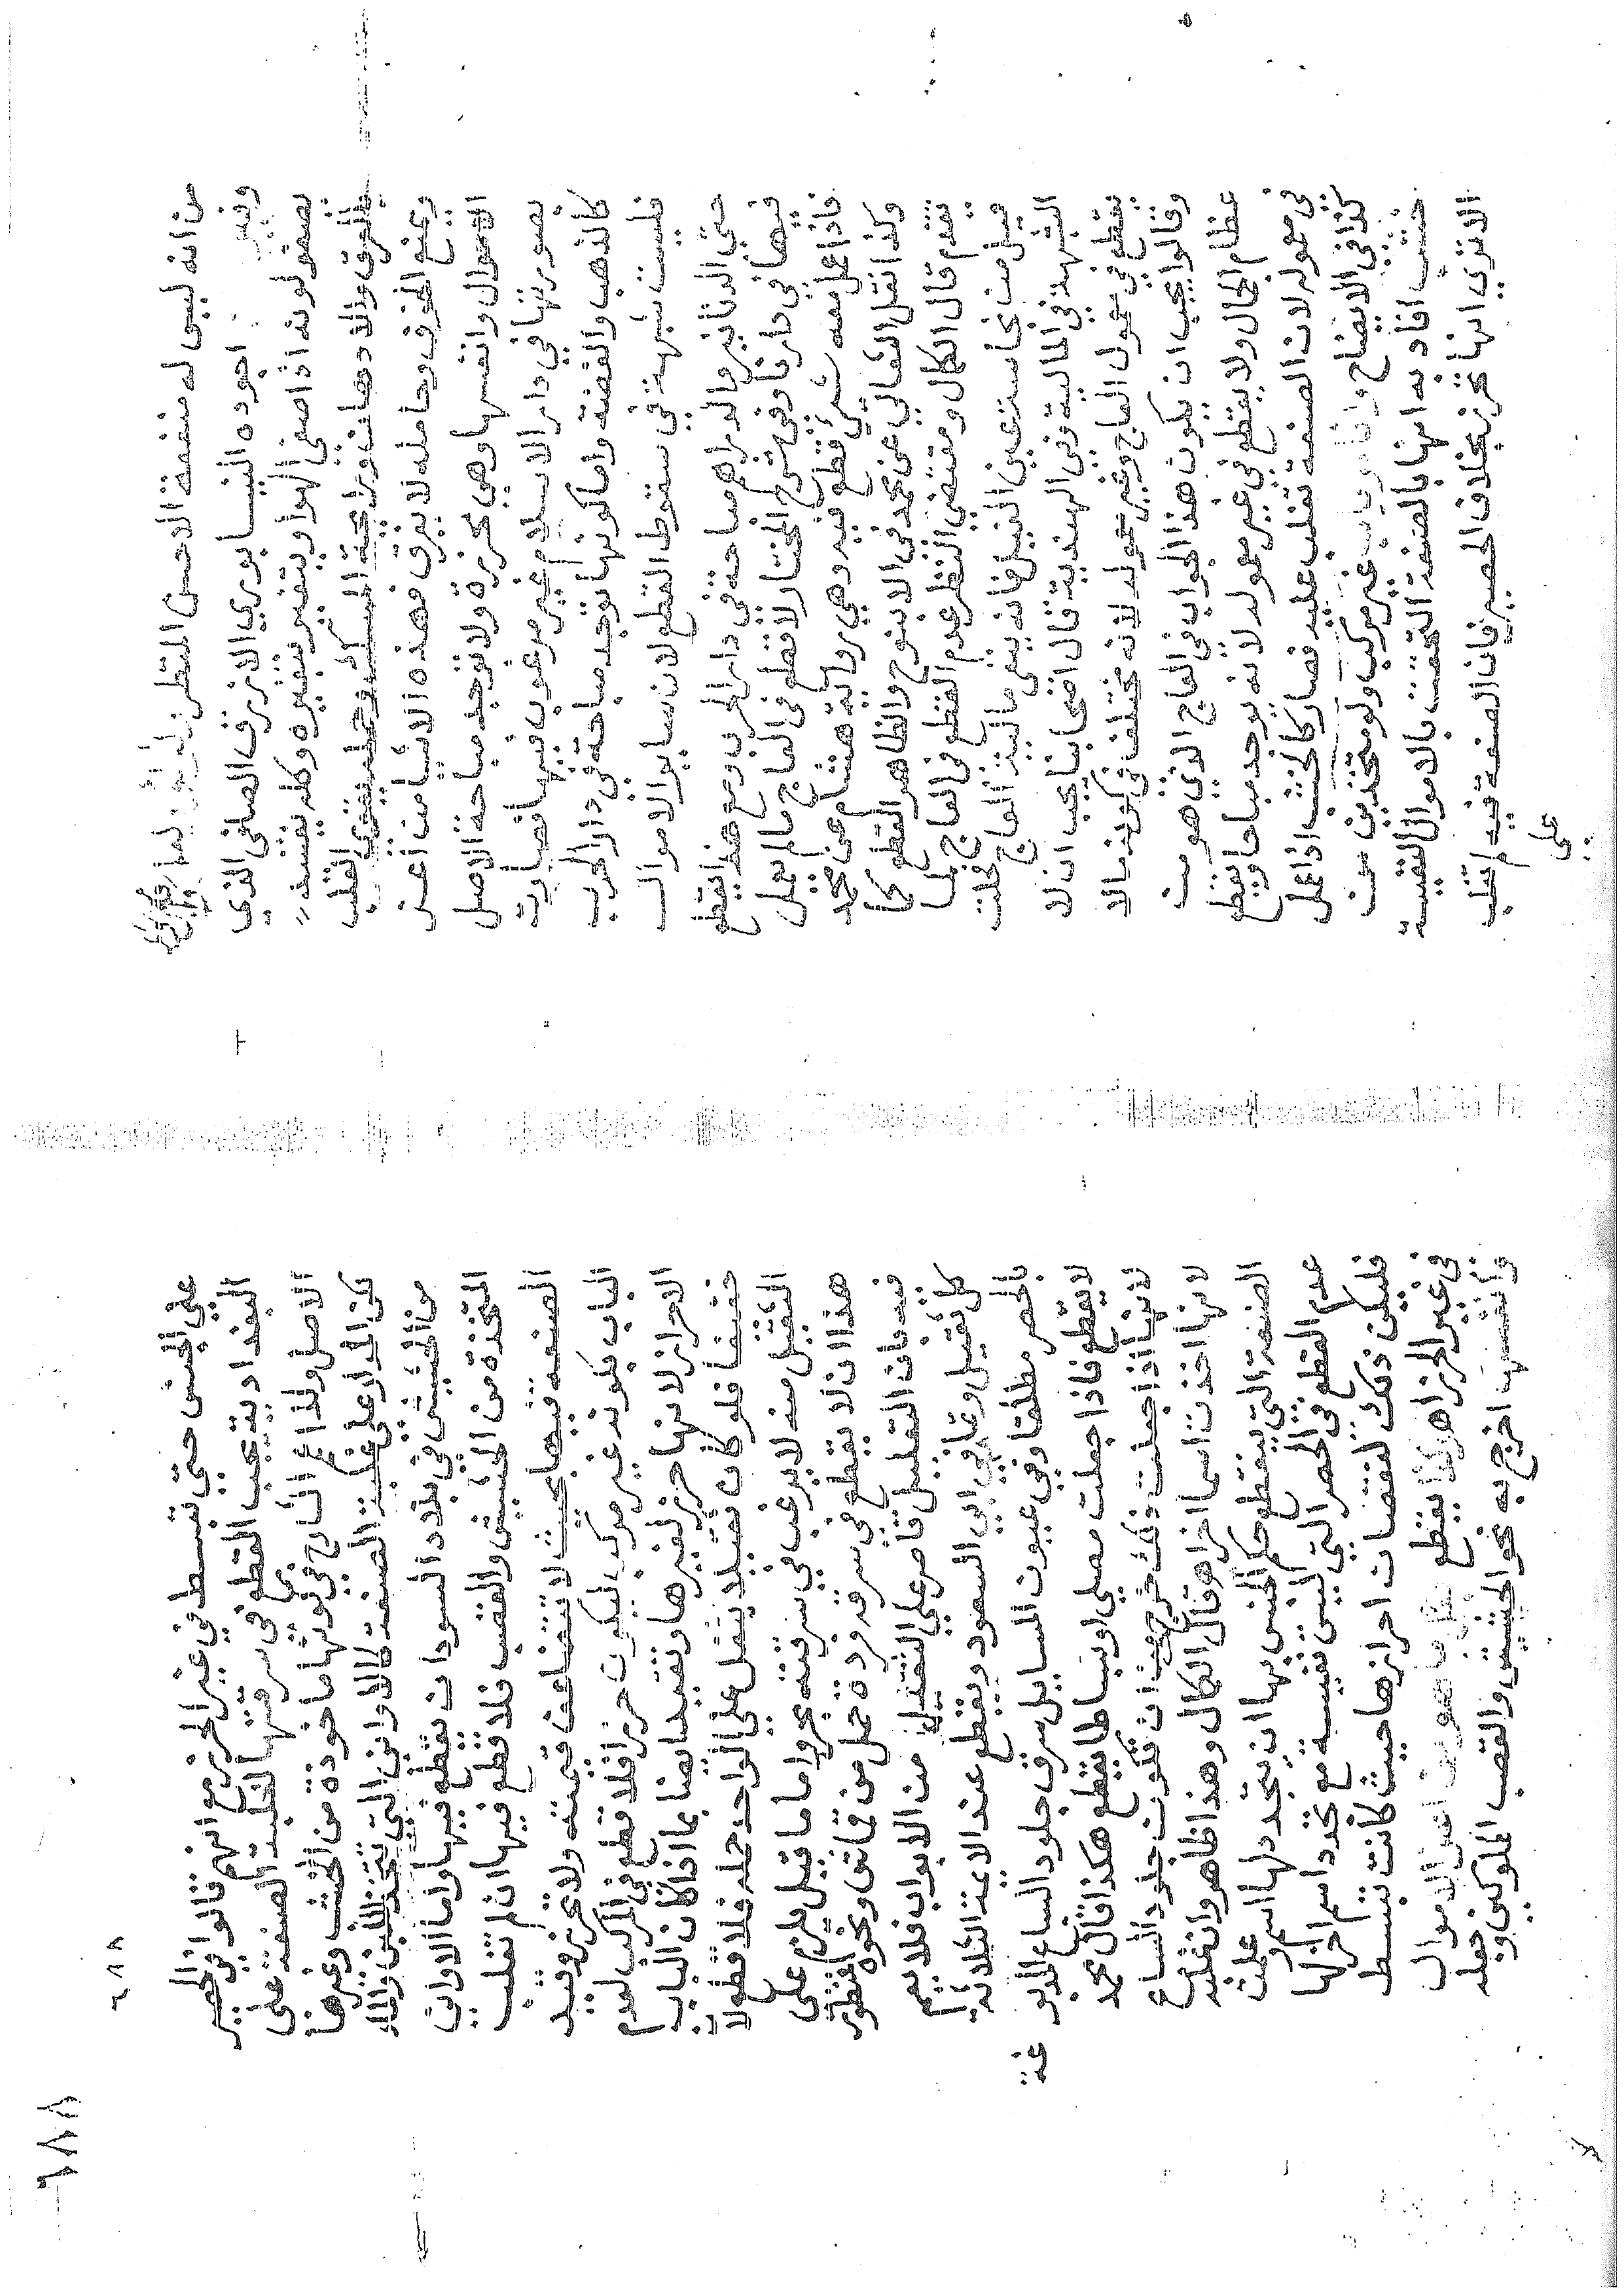 من انه ليس له منفعة الاحسن المنظر
وفيه اجوده النيسابوري الازرق الصافي الذي
يصفو لونه اذا صفى الهوا ويتغير بتغيره وكله
بالعرق والادهان ورايحة المسك وحمله يقوي القلب
ويمنع الخوف وحامله لا يغرق فهذه الاشيا من اعز
الاموال وانفسها وهي محرزة ولا توجد مباحة الاصل
بصورتها في دار الاسلام غير مرغوب فيها فصارت
كالذهب والفضة واما كونها توجد مباحة في دار الحرب
فليست شبهة في سقوط القطع لان ساير الاموال
حتى الدنانير والدراهم مباحة في دار الحرب ومع هذا يقطع
فيها في دارنا وفي شرح المختار لا قطع في العاج مالم يعمل
فاذا عمل منه شي قطع فيه وهي رواية هشام عن محمد
وكذا نقل القالي عن محمد في الابنوج والظاهر القطع كما
تقدم قال الكمال ومقتضى النظر عدم القطع في العاج لما
قيل من نجاسة عين الفيل فانه ينفي مالية العاج قلت
الشبهة في المالية وفي الهندية قال اصحابنا يجب ان لا
يقطع في معمول العاج وغير معموله لانه مختلف في كونه مالا
وقالوا يجب ان يكون هذا الجواب في العاج الذي هو من
عظام الجمال ولا يقطع في غير معموله لانه يوجد مباحا ويقطع
في معموله لان الصنعة تغلب عليه فصار كالخشب اذا عمل
كذا في الايضاح واناء وباب غير مركب ولو متخذين من
خشب افاد به انها بالصنعة التحقت بالاموال النفيسة
الا ترى انها تحرز بخلاف الحصير فان الصنعة فيه لم تغلب
على
٦٨٨
على الجنس حتى تبسط في غير الحرز مع انهم قالوا في الحصير
البغدادية يجب القطع في سرقتها لغلبة الصنعة على
الاصل ولذا الشارح في لونها ماخوذة من الخشب وغيرها
لكن المدار على غلبة الصنعة كالاواني التي تتخذ للبن والماء
من الحشيش في بلاد السودان يقطع فيها واما الاوان
المتخذة من الحشيش والقصب فلا قطع فيها ان لم تغلب
الصنعة فيها بحيث لا تتضاعف قيمته ولا تحرز وقيد
الباب بكونه غير مركب ليكون حرزا فلا قطع في المركب لعدم
الاحراز لانها حرز لغيرها وتقيد ايضا بما اذا كان الباب
خفيفا فلو كان ثقيلا يثقل على الواحد حمله فلا قطع لان
الثقيل منه لا يرغب في سرقته بحر واما ما قيل يلزم على
هذا ان لا يقطع في سرقة فردة حمل من قماش ونحوه المنظور
فيه بان التعليل قاصر على الثقيل من الابواب فلا يعم
كل ثقيل وتمامه في ابي السعود ويقطع عند الايمة الثلاثة
بالحصر مطلقا وفي عيون المسايل سرق جلود السباع المدبوغة
لا يقطع فاذا جعلت مصلى او بساطا يقطع هكذا قال محمد
لانها اذا جعلت ذلك خرجت من ان تكون جلود السباع
لانها اخذت اسما اخر اه قال الكمال وهذا ظاهر وان غلبة
الصنعة التي ينقطع حكم الجنس بها ان يتجدد لها اسم وعلت
عدم القطع في الحصر التي ليست نفيسة مع تجدد اسم اخر لها
فليكن ذلك لنقصان احرازها حيث كانت تبسط
في غير الحرز اه لا يقطع بكل ما هو من اعز الاموال
وانفسها اخرج به نحو الحشيش والقصب المملوكين وجعله
٦٨٨